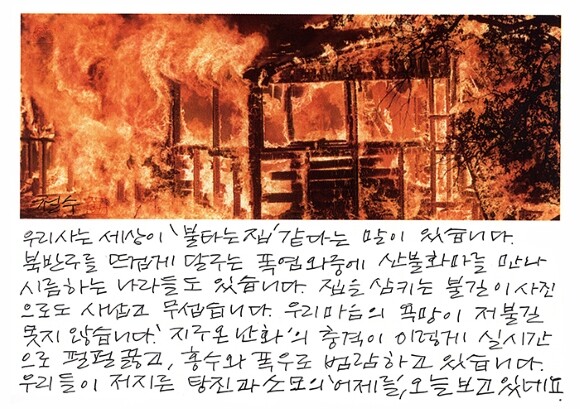 철수
우리사는 세상이 '불타는 집' 같다는 말이 있습니다.
북반구를 뜨겁게 달구는 폭염와중에 산불화마를 만나
시름하는 나라들도 있습니다. 집을 삼키는 불길이 사진
으로도 사납고 무섭습니다. 우리마음의 욕망이 저불길
못지 않습니다. '지구온난화'의 충격이 이렇게 실시간
으로 펄펄 끓고, 홍수와 폭우로 범람하고 있습니다.
우리들이 저지른 탕진과 소모의 '어제를', 오늘 보고 있네요.